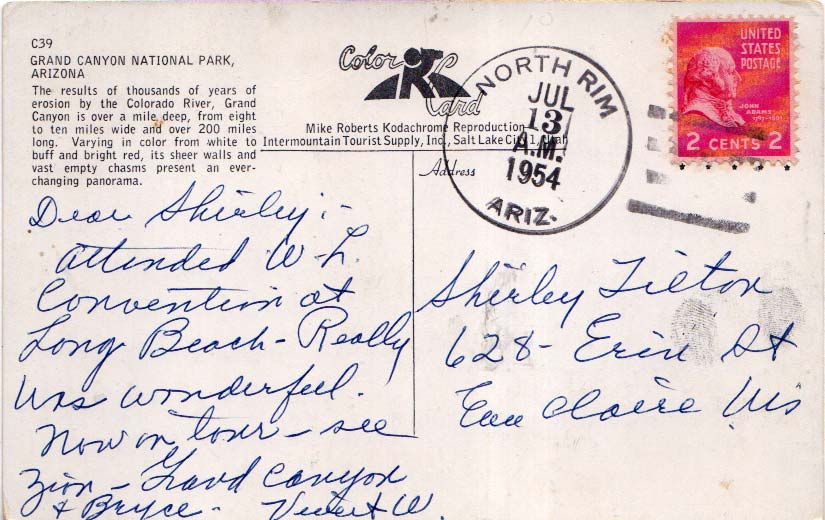 C39
GRAND CANYON NATIONAL PARK,
ARIZONA
The results of thousands of years of
erosion by the Colorado River, Grand
Canyon is over a mile deep, from eight
to ten miles wide and over 200 miles
long. Varying in color from white to
buff and bright red, its sheer walls and
vast empty chasms present an ever-
changing panorama.
Color
Card
Mike Roberts Kodachrome Reproduction
Intermountain Tourist Supply, Inc., Salt Lake City, Utah
Address
NORTH RIM
JUL
13
A.M.
1954
ARIZ.
UNITED
STATES
POSTAGE
JOHN
ADAMS
1797-1801
2 CENTS 2
Dear Shirley:-
attended W-L.
Convention at
Long Beach - Really
was wonderful.
Now on tour - see
Zion - Grand Canyon
+ Bryce -
Shirley Tilton
628- Erin St
Eau Claire Wis